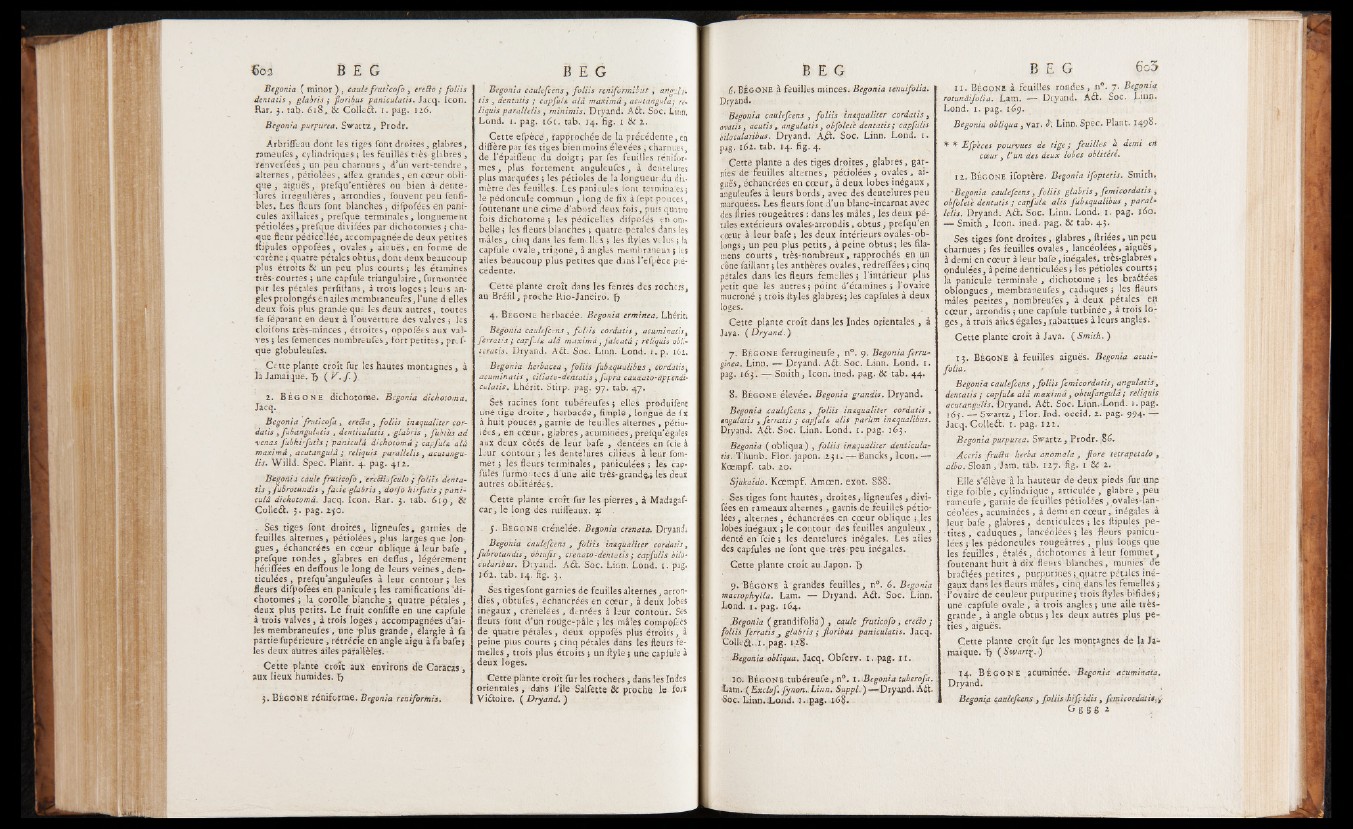 602 B E G
Begonia ( minor ) , caule fruticoso , erecto ; foliis
dentatis , glabris ; floribus paniculatis. Jacq. Icon.
Rar. 3. tab. 618, & Collect. 1. pag. 126.
Begonia purpurea. Swartz , Prodr.
Arbrisseau dont les tiges sont droites, glabres,
rameuses, cylindriques ; les feuilles très-glabres ,
renversées, un peu charnues , d'un vert-tendre ,
alternes , pétiolées , assez grandes, en cœur obli-
que , aiguës, presqu'entières ou bien à dente-
lures irregulières, arrondies, souvent peu sensi-
bles. Les fleurs sont blanches, disposées en pani-
cules axillaires, presque terminales, longuement
pétiolées, presque divisées par dichotomies ; cha-
que fleur pédicellée, accompagnée de deux petites
stipules opposées, ovales , aiguës, en forme de
carène ; quatre pétales obtus, dont deux beaucoup
plus étroits & un peu plus courts ; les étamines
très-courtes ; une capsule triangulaire , surmontée
par les pétales persistans, à trois loges ; leurs an-
gles prolongés en ailes membraneuses, l'une d'elles
deux fois plus grande que les deux autres, toutes
se séparant en deux à l'ouverture des valves ; les
cloisons très-minces , étroites, opposées aux val-
ves ; les semences nombreuses, fort petites, pres-
que globuleuses.
Cette plante croît sur les hautes montagnes , à
la Jamaïque. ♄ ( V. s. )
2. BÉGONE dichotome. Begonia dichotoma.
Jacq.
Begonia fruticosa , erecta , foliis inæqualiter cor-
datis , subangulatis , denticulatis , glabris , subtùs ad
venas subhirsutis ; paniculâ dichotomâ ; capsulæ alâ
maximâ , acutangulâ ; reliquis parallelis , acutangu-
lis. Willd. Spec. Plant. 4. pag. 412.
Begonia caule fruticoso , erectiusculo ; foliis denta-
tis , subrotundis , facie glabris , dorso hirsutis ; pani-
culâ dichotomâ. Jacq. Icon. Rar. 3. tab. 619, &
Collect. 3. pag. 250.
Ses tiges sont droites, ligneuses, garnies de
feuilles alternes , pétiolées, plus larges que lon-
gues , échancrées en cœur oblique à leur base ,
presque rondes, glabres en dessus , légérement
hérissées en dessous le long de leurs veines, den-
ticulées , presqu'anguleuses à leur contour ; les
fleurs disposées en panicule ; les ramifications di-
chotomes ; la corolle blanche ; quatre pétales ,
deux plus petits. Le fruit consiste en une capsule
à trois valves , à trois loges , accompagnées d'ai-
les membraneuses, une plus grande , élargie à sa
partie supérieure , rétrécie en angle aigu à sa base ;
les deux autres ailes parallèles.
Cette plante croît aux environs de Caracas ,
aux lieux humides. ♄
3. BÉGONE réniforme. Begonia reniformis.
B E G
Begonia caulescens, foliis reniformibus , angula-
tis , dentatis ; capsulæ alâ maximâ , acutangulâ ; re-
liquis parallelis , minimis. Dryand. Act. Soc. Linn.
Lond. 1. pag. 161. tab. 14. fig. 1 & 2.
Cette espèce, rapprochée de la précédente, en
diffère par ses tiges bien moins élevées , charnues,
de l'épaisseur du doigt ; par ses feuilles rénifor-
mes , plus fortement anguleuses , à dentelures
plus marquées ; les pétioles de la longueur du dia-
mètre des feuilles. Les panicules sont terminales ;
le pédoncule commun , long de six à sept pouces,
soutenant une cime d'abord deux fois, puis quatre
fois dichotome ; les pédicelles disposés en om-
belle ; les fleurs blanches ; quatre pétales dans les
mâles, cinq dans les femelles ; les styles velus ; la
capsule ovale, trigone, à angles membraneux ; les
ailes beaucoup plus petites que dans l'espèce pré-
cédente.
Cette plante croît dans les fentes des rochers,
au Brésil , proche Rio-Janeiro. ♄
4. BÉGONE herbacée. Begonia erminea. Lhérit.
Begonia caulescens , foliis cordatis , acuminatis,
serratis ; capsulæ alâ maximâ , falcatâ ; reliquis obli-
teratis. Dryand. Act. Soc. Linn. Lond. 1. p. 162.
Begonia herbacea , foliis subæqualibus , cordatis,
acuminatis , ciliato-dentatis , suprà caudato-appendi-
culatis. Lhérit. Stirp. pag. 97. tab. 47.
Ses racines sont tubéreuses ; elles produisent
une tige droite , herbacée, simple , longue de six
à huit pouces , garnie de feuilles alternes , pétio-
lées, en cœur, glabres , acuminées , presqu'égales
aux deux côtés de leur base , dentées en scie à
leur contour ; les dentelures ciliées à leur som-
met ; les fleurs terminales , paniculées ; les cap-
sules surmontées d'une aile très-grande ; les deux
autres oblitérées.
Cette plante croît sur les pierres, à Madagas-
car, le long des ruisseaux. ♃
5. BEGONE crénelée. Begonia crenata. Dryand.
Begonia caulescens , foliis inæqualiter cordatis,
subrotundis , obtusis , crenato-dentatis ; capsulis bilo-
cularibus. Dryand. Act. Soc. Linn. Lond. 1. pag.
162. tab. 14. fig. 3.
Ses tiges sont garnies de feuilles alternes, arron-
dies , obtuses, échancrées en cœur, à deux lobes
inégaux , crénelées , dentées à leur contour. Ses
fleurs sont d'un rouge-pâle ; les mâles composées
de quatre pétales , deux opposés plus étroits , à
peine plus courts ; cinq pétales dans les fleurs fe-
melles , trois plus étroits ; un style ; une capsule à
deux loges.
Cette plante croît sur les rochers , dans les Indes
orientales , dans l'île Salsette & proche le fort
Victoire. ( Dryand. )
B E G
6. BÉGONE à feuilles minces. Begonia tenuifolia.
Dryand.
Begonia caulescens , foliis inæqualiter cordatis ,
ovatis , acutis , angulatis , obsoletè dentatis ; capsulis
bilocularibus. Dryand. Act. Soc. Linn. Lond. 1.
pag. 162. tab. 14. fig. 4.
Cette plante a des tiges droites, glabres , gar-
nies de feuilles alternes, pétiolées , ovales , ai-
guës, échancrées en cœur, à deux lobes inégaux ,
anguleuses à leurs bords, avec des dentelures peu
marquées. Les fleurs sont d'un blanc-incarnat avec
des stries rougeâtres : dans les mâles, les deux pé-
tales extérieurs ovales-arrondis , obtus , presqu'en
cœur à leur base ; les deux intérieurs ovales-ob-
longs, un peu plus petits, à peine obtus ; les fila-
mens courts , très-nombreux , rapprochés en un
cône saillant ; les anthères ovales, redressées ; cinq
pétales dans les fleurs femelles ; l'intérieur plus
petit que les autres ; point d'étamines ; l'ovaire
mucroné ; trois styles glabres ; les capsules à deux
loges.
Cette plante croît dans les Indes orientales , à
Java. ( Dryand. )
7. BEGONE ferrugineuse , n°. 9. Begonia ferru-
ginea. Linn. — Dryand. Act. Soc. Linn. Lond. 1.
pag. 163. — Smith, Icon. ined. pag. & tab. 44.
8. BÉGONE élevée. Begonia grandis. Dryand.
Begonia caulescens , foliis inæqualiter cordatis ,
angulatis , serratis ; capsulæ alis parùm inæqualibus.
Dryand. Act. Soc. Linn. Lond. 1. pag. 163.
Begonia ( obliqua ) , foliis inæqualiter denticula-
tis. Thunb. Flor. japon. 231. — Bancks , Icon. —
Kœmpf. tab. 20.
Sjukaido. Kœmpf. Amœn. exot. 888.
Ses tiges sont hautes, droites, ligneuses , divi-
sées en rameaux alternes , garnis de feuilles pétio-
lées, alternes , échancrées en cœur oblique ; les
lobes inégaux ; le contour des feuilles anguleux ,
denté en scie ; les dentelures inégales. Les ailes
des capsules ne sont que très peu inégales.
Cette plante croît au Japon. ♄
9. BÉGONE à grandes feuilles, n°. 6. Begonia
macrophylla. Lam. — Dryand. Act. Soc. Linn.
Lond. 1. pag. 164.
Begonia ( grandifolia ) , caule fruticoso , erecto ;
foliis serratis , glabris ; floribus paniculatis. Jacq.
Collect. 1. pag. 128.
Begonia obliqua. Jacq. Observ. 1. pag. 11.
10. BÉGONE tubéreuse , n°. 1. Begonia tuberosa.
Lam. ( Exclus. synon. Linn. Suppl. ) — Dryand. Act.
Soc. Linn. Lond. 1. pag. 168.
B E G 603
11. BÉGONE à feuilles rondes , n°. 7. Begonia
rotundifolia. Lam. — Dryand. Act. Soc. Linn.
Lond. 1. pag. 169.
Begonia obliqua , var. δ. Linn. Spec. Plant. 1498.
* * Espèces pourvues de tige ; feuilles à demi en
cœur , l'un des deux lobes oblitéré.
12. BÉGONE isoptère. Begonia isopteris. Smith.
Begonia caulescens , foliis glabris , semicordatis ,
obsoletè dentatis ; capsulæ alis subæqualibus , paral-
lelis. Dryand. Act. Soc. Linn. Lond. 1. pag. 160.
— Smith , Icon. ined. pag. & tab. 43.
Ses tiges sont droites , glabres , striées , un peu
charnues ; ses feuilles ovales , lancéolées , aiguës ,
à demi en cœur à leur base, inégales, très-glabres ,
ondulées, à peine denticulées ; les pétioles courts ;
la panicule terminale , dichotome ; les bractées
oblongues , membraneuses , caduques ; les fleurs
mâles petites , nombreuses , à deux pétales en
cœur , arrondis ; une capsule turbinée , à trois lo-
ges , à trois ailes égales, rabattues à leurs angles.
Cette plante croît à Java. ( Smith. )
13. BEGONE à feuilles aiguës. Begonia acuti-
folia.
Begonia caulescens , foliis semicordatis, angulatis,
dentatis ; capsulæ alâ maximâ , obtusangulâ ; reliquis
acutangulis. Dryand. Act. Soc. Linn. Lond. 1. pag.
165. — Swartz , Flor. Ind. occid. 2. pag. 994. —
Jacq. Collect. 1. pag. 122.
Begonia purpurea. Swartz , Prodr. 86.
Aceris fructu herba anomala , flore tetrapetalo ,
albo. Sloan , Jam. tab. 127. fig. 1 & 2.
Elle s'élève à la hauteur de deux pieds sur une
tige foible, cylindrique , articulée , glabre , peu
rameuse , garnie de feuilles pétiolées , ovales-lan-
céolées, acuminées , à demi en cœur , inégales à
leur base , glabres , denticulées ; les stipules pe-
tites , caduques , lancéolées ; les fleurs panicu-
lées ; les pédoncules rougeâtres , plus longs que
les feuilles , étalés , dichotomes à leur sommet ,
soutenant huit à dix fleurs blanches , munies de
bractées petites , purpurines ; quatre pétales iné-
gaux dans les fleurs mâles, cinq dans les femelles ;
l'ovaire de couleur purpurine ; trois styles bifides ;
une capsule ovale , à trois angles ; une aile très-
grande , à angle obtus ; les deux autres plus pe-
ties , aiguës.
Cette plante croît sur les montagnes de la Ja-
maïque. ♄ ( Swartz. )
14. BÉGONE acuminée. Begonia acuminata.
Dryand.
Begonia caulescens , foliis hispidis , semicordatis,
G g g g 2